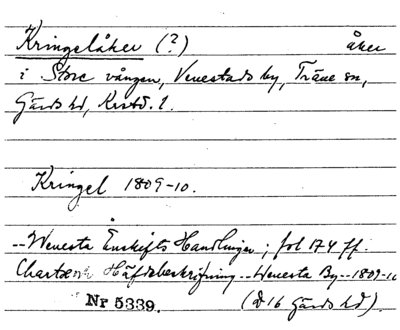 Kringelåker (?) åker
i Store vången, Venestads by, Träne sn,
Gärds hd, Krstd. l.
Kringel 1809-10.
--Wenesta Enskifts Handlingar; fol 174 ff.
Charta och Häfdebeskrifning -- Wenesta By -- 1809-10
Nr 5339. (D16 Gärds hd).